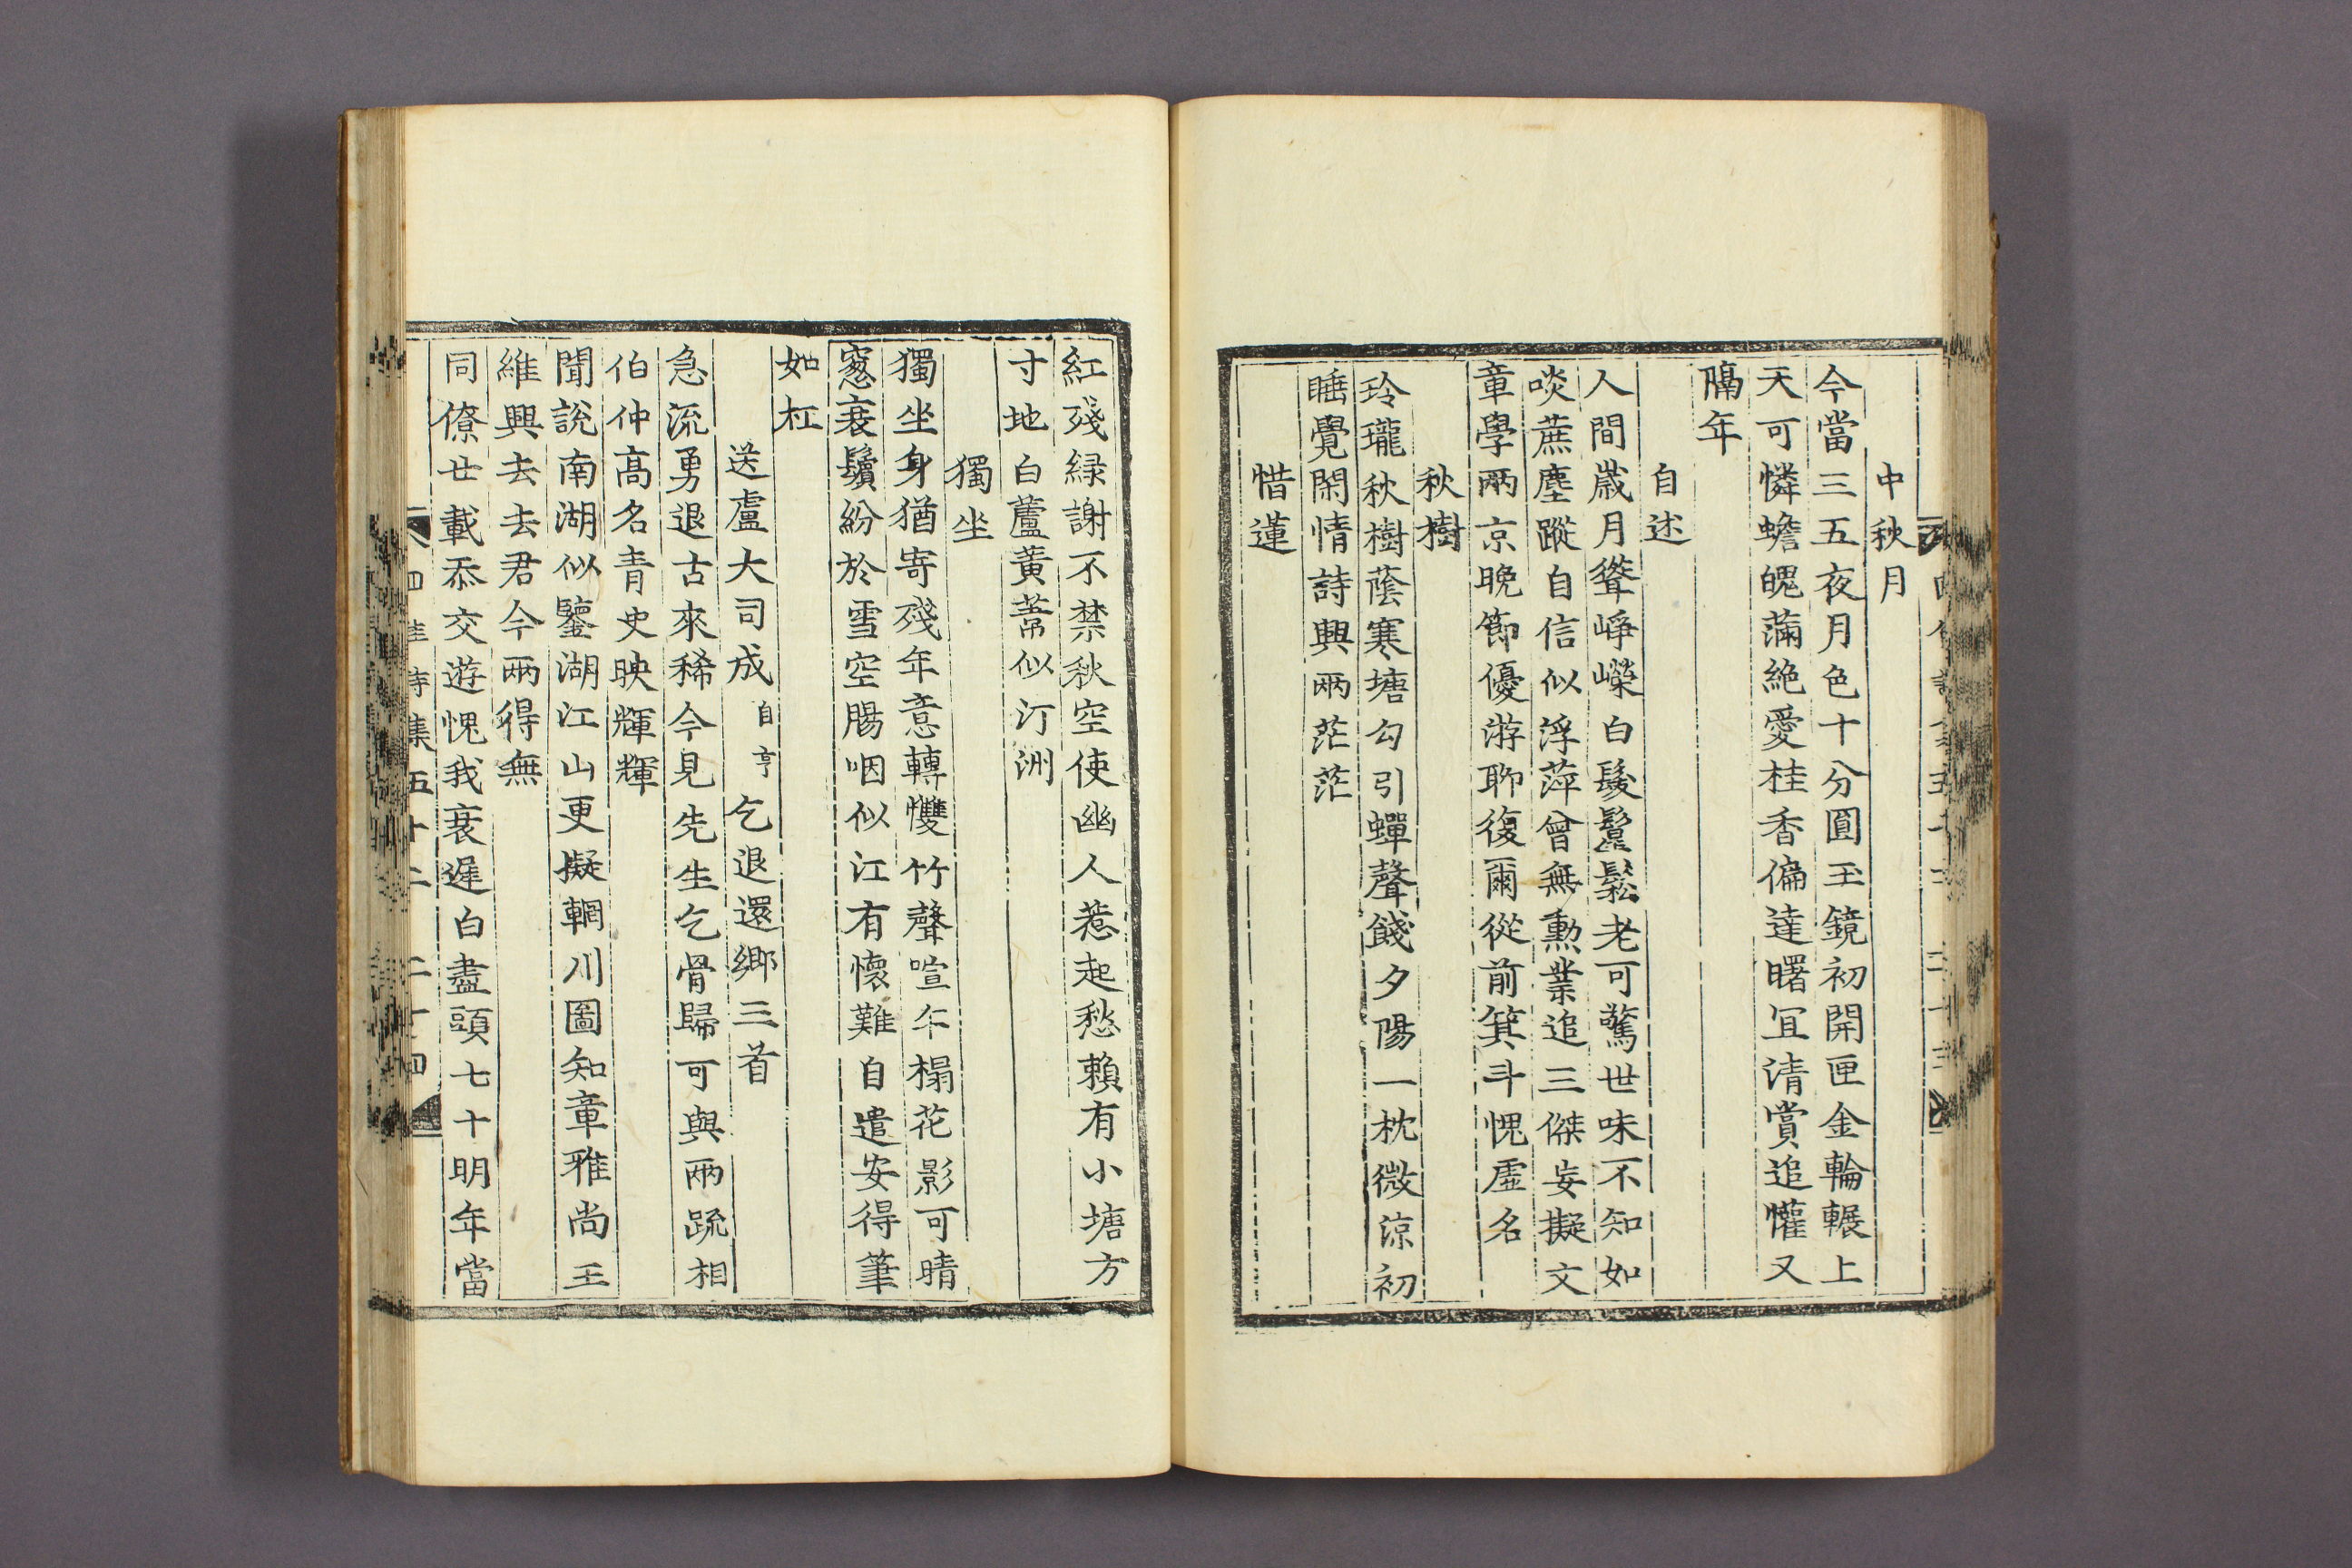 中秋月
今當三五夜月色十分圓玉鏡初開匣金輪輾上
天可憐蟾魄滿絶愛桂香偏達曙宜清賞追懽又
隔年
自述
人間歲月聳崢嶸白髮鬅鬆老可驚世味不知如
啖蔗塵蹤自信似浮萍曾無勳業追三傑妄擬文
章學兩京晚節優游聊復爾從前箕斗愧虛名
秋樹
玲瓏秋樹蔭寒塘勾引蟬聲餞夕陽一枕微涼初
睡覺閑情詩興兩茫茫
惜蓮
紅殘緑謝不禁秋空使幽人惹起愁賴有小塘方
寸地白蘆黃葦似汀洲
獨坐
獨坐身猶寄殘年意轉慺竹聲喧午榻花影可晴
窓衰鬢紛於雪空腸咽似江有懷難自遣安得筆
如杠
送盧大司成自亨乞退還鄉三首
急流勇退古來稀今見先生乞骨歸可與兩䟽相
伯仲高名青史映輝輝
聞說南湖似鑒湖江山更擬輞川圖知章雅尚王
維興去去君今兩得無
同僚廿載忝交遊愧我衰遲白盡頭七十明年當
四佳詩集五十二 二十四